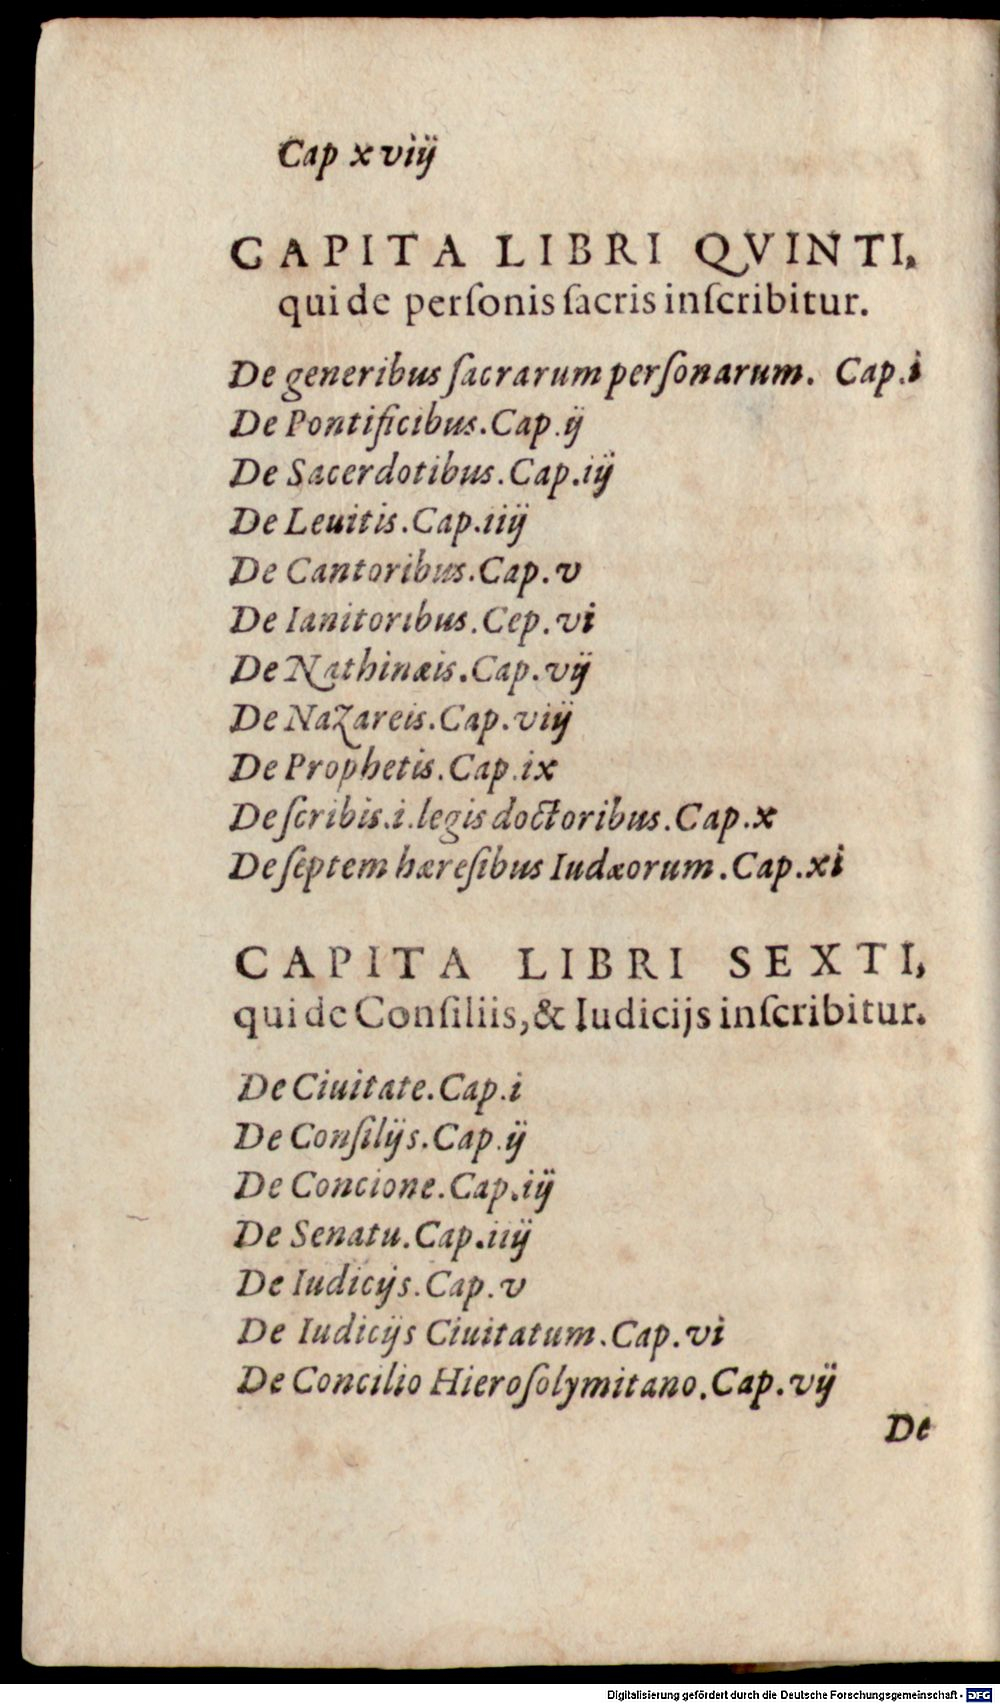 Cap xviij
CAPITA LIBRI QVINTI,
qui de perſonis ſacris inſcribitur.
De generibus ſacrarum perſonarum. Cap.i
De Pontificibus.Cap.ij
De Sacerdotibus.Cap.iij
De Leuitis.Cap.iiij
De Cantoribus.Cap.v
De Ianitoribus.Cep.vi
De Nathinæis.Cap.vij
De Nazareis.Cap.viij
De Prophetis.Cap.ix
De ſcribis.i.legis doctoribus.Cap.x
De ſeptem hæreſibus Iudæorum.Cap.xi
CAPITA LIBRI SEXTI,
qui de Conſiliis,& Iudicijs inſcribitur.
De Ciuitate.Cap.i
De Conſilijs.Cap.ij
De Concione.Cap.iij
De Senatu.Cap.iiij
De Iudicijs.Cap.v
De Iudicijs Ciuitatum.Cap.vi
De Concilio Hieroſolymitano.Cap.vij
De
Digitalisierung gefördert durch die Deutsche Forschungsgemeinschaft - DFG